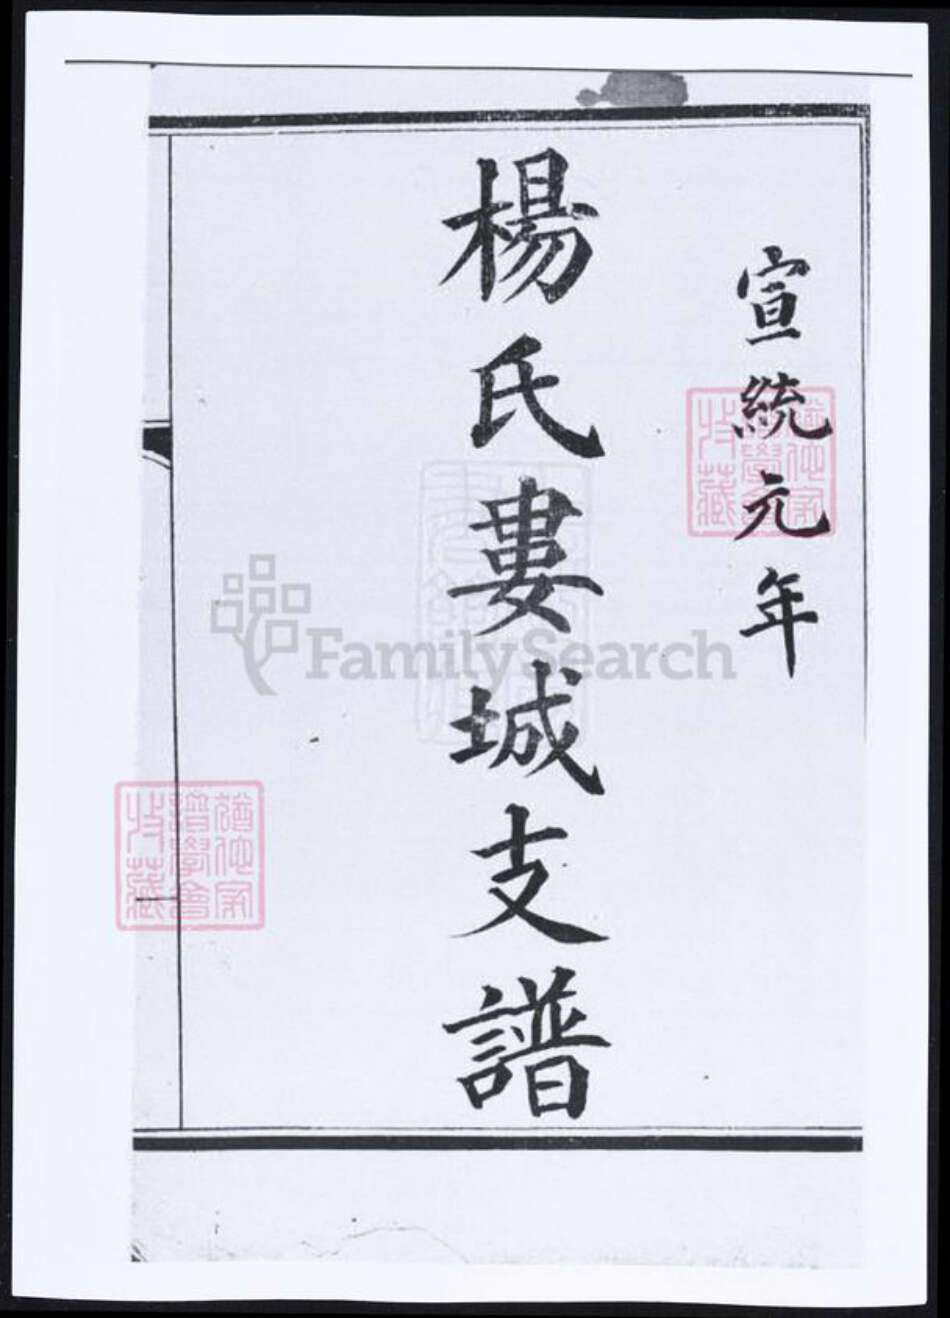 宣統元年
楊氏婁城支譜
FamilySearch
譜學會
收藏